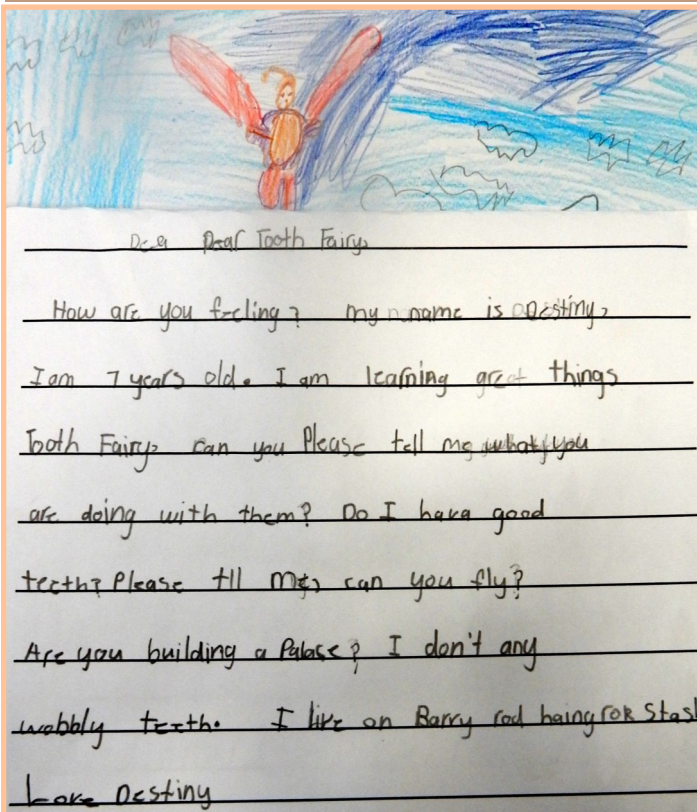 Dea Dear Tooth Fairy,
How are you feeling? My name is Destiny,
I am 7 years old. I am learning great things
Tooth Fairy, can you Please tell me what you
are doing with them? Do I hava good
teeth? Please tll me, can you fly?
Are you building a Palace? I don't any
wobbly teeth. I like on Barry rod
Love Destiny